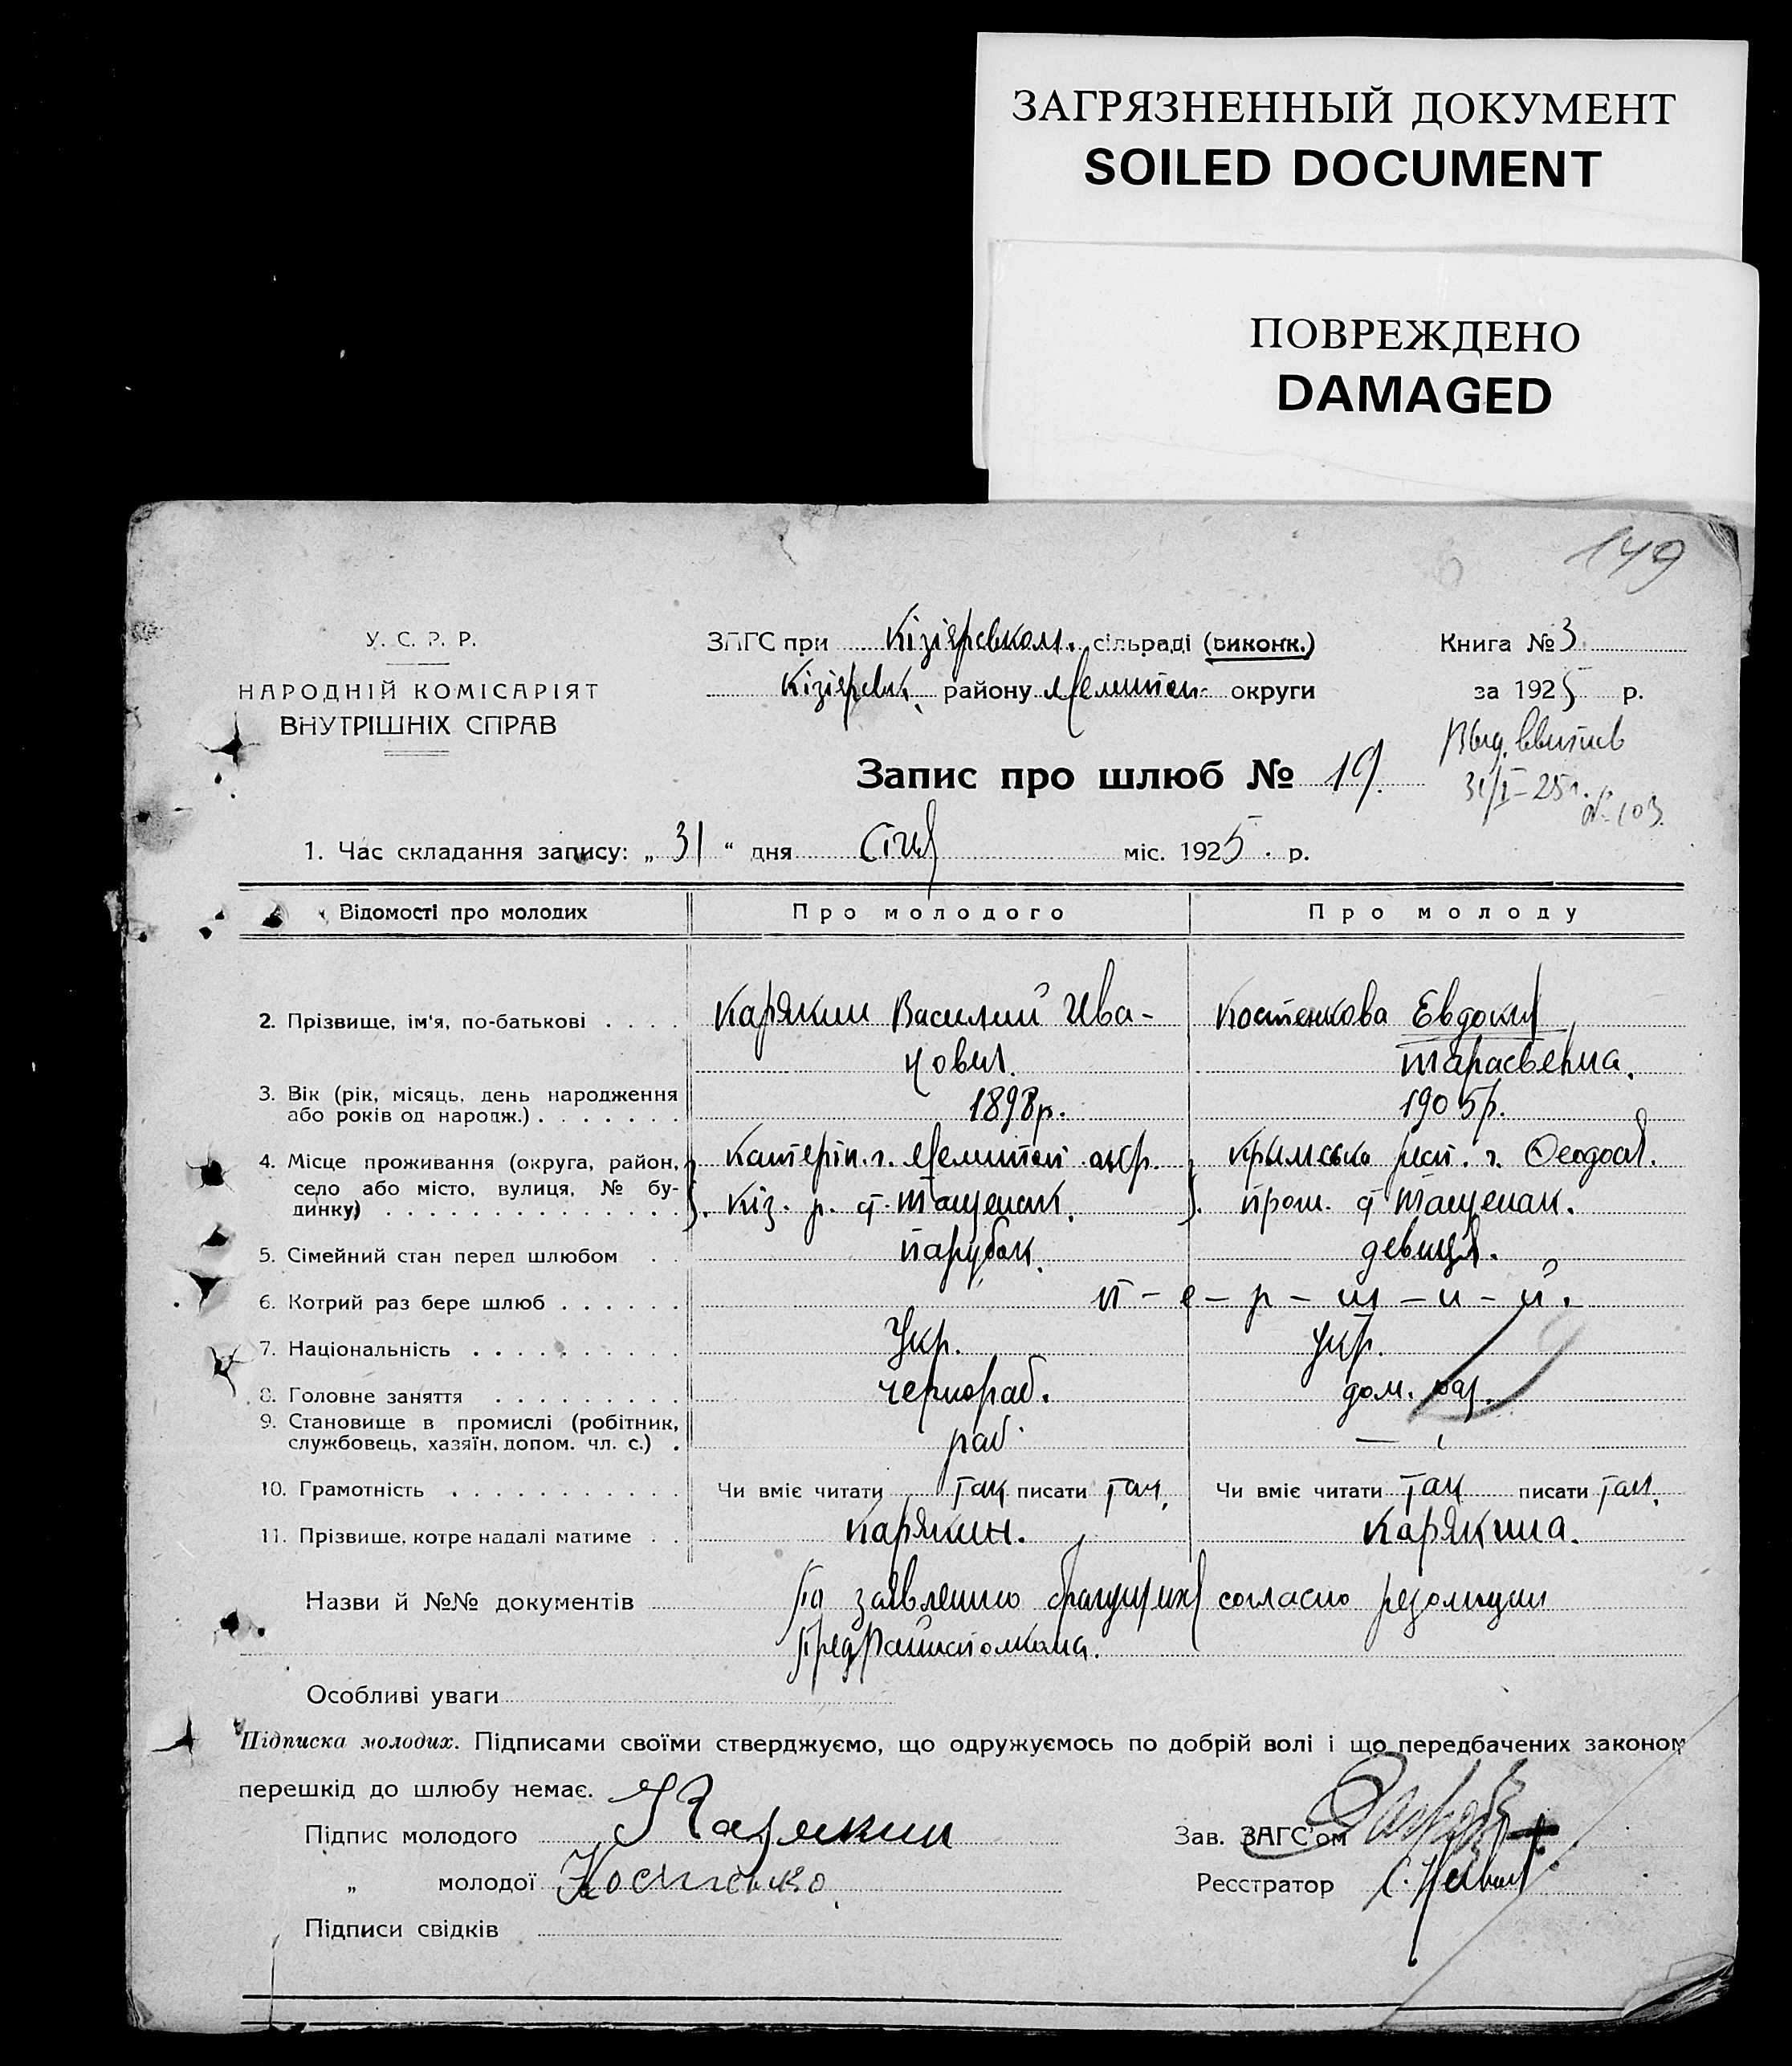 ЗАГРЯЗНЕННЫЙ ДОКУМЕНТ
SOILED DOCUMENT
ПОВРЕЖДЕНО
DAMAGED
149
У. С. Р. Р.
НАРОДНІЙ КОМІСАРІЯТ
ВНУТРІШНІХ СПРАВ
ЗАГС при Кізіярвком. сільраді (виконк.)
Кізіярвк. району Мелитоп. округи
Книга № 3
за 1925 р.
Запис про шлюб № 19.
Выд.
31/I-25 г.
№ 103.
1. Час складання запису: „ 31 “ дня Січня міс. 1925. р.
Відомості про молодих Про молодого Про молоду
2. Прізвище, ім'я, по-батькові . . . . Карякин Василий Ива- Костенкова Евдокия
нович. Тарасьевна.
3. Вік (рік, місяць, день народження
або років од народж.) . . . . . . . 1898р. 1905р.
4. Місце проживання (округа, район, Катерін. г. Мелитоп окр. Крымська респ. г. Феодосія.
село або місто, вулиця, № бу- Кіз. р. ст. Тащенак. прож. ст Тащенак.
динку) . . . . . . . . . . . . . .
5. Сімейний стан перед шлюбом . . парубок. девиця.
6. Котрий раз бере шлюб . . . . . . п - е - р - ш - и - й.
7. Національність . . . . . . . . . . Укр. Укр.
8. Головне заняття . . . . . . . . . чернораб. дом. хоз.
9. Становище в промислі (робітник,
службовець, хазяїн, допом. чл. с.) . раб. —
10. Грамотність . . . . . . . . . . . Чи вміє читати так писати так. Чи вміє читати так писати так.
11. Прізвище, котре надалі матиме . . Карякин. Карякина.
Назви й №№ документів По заявлению брачущихся согласно резолюции
Предрайисполкома.
Особливі уваги
Підписка молодих. Підписами своїми стверджуємо, що одружуємось по добрій волі і що передбачених законом
перешкід до шлюбу немає.
Підпис молодого Карякин
Зав. ЗАГС'ом
„ молодої Костенко
Реєстратор
Підписи свідків